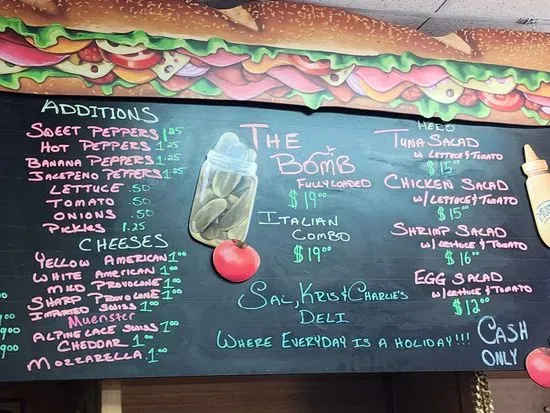 ADDITIONS
SWEET PEPPERS 1.25
HOT PEPPERS 1.25
BANANA PEPPERS 1.25
JALEPENO PEPPERS 1.25
LETTUCE .50
TOMATO .50
ONIONS .50
PICKLES 1.25
CHEESES
YELLOW AMERICAN 1.00
WHITE AMERICAN 1.00
MILD PROVOLONE 1.00
SHARP PROVOLONE 1.00
IMPORTED SWISS 1.00
MUENSTER
ALPINE LACE SWISS 1.00
CHEDDAR 1.00
MOZZARELLA 1.00
THE
BOMB
FULLY LOADED
$19.00
ITALIAN
COMBO
$19.00
HERO
TUNA SALAD
W LETTUCE & TOMATO
$15.00
CHICKEN SALAD
W/LETTUCE & TOMATO
$15.00
SHRIMP SALAD
W/LETTUCE & TOMATO
$16.00
EGG SALAD
W/LETTUCE & TOMATO
$12.00
SAL, KRIS & CHARLIE'S
DELI
WHERE EVERYDAY IS A HOLIDAY!!!
CASH
ONLY